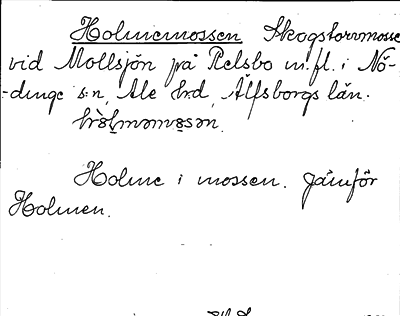 Holmemossen Skogstorvmosse
vid Mollsjön på Relsbo m.fl. i Nö-
-dinge s:n, Ale h:d, Älfsborgs län.
Holme i mossen. Jämför
Holmen.